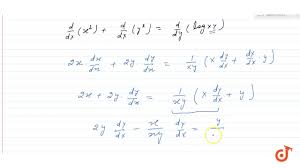 d/dx (x²) + d/dx (y²) = d/dy (log xy)
2x dx/dx + 2y dy/dx = 1/xy (x dy/dx + dx/dx · y)
2x + 2y · dy/dx = 1/xy (x dy/dx + y)
2y dy/dx - x/xy dy/dx = y/